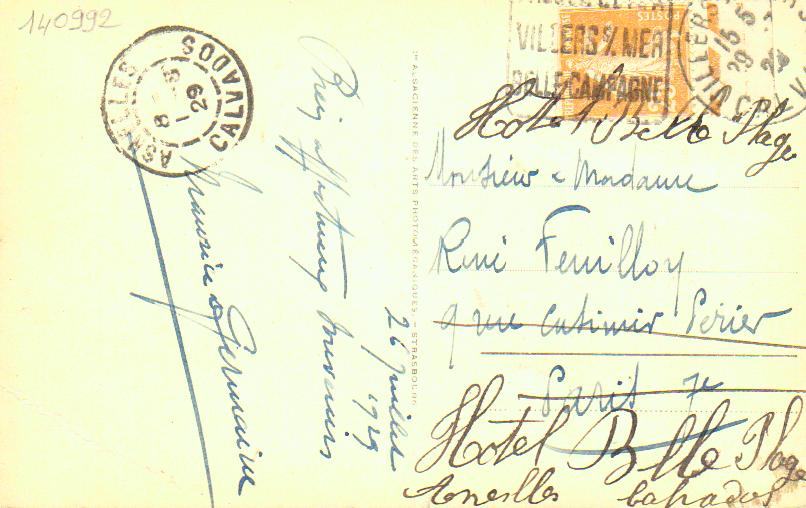 140992
ASNELLES
CALVADOS
8 -
1 - 8
29
VILLERS S/ MER
BELLE CAMPAGNE
POSTES
VILLERS
15
29
Bien affectueux souvenirs
Maurice & Germaine
26 juillet
1929
Cie ALSACIENNE DES ARTS PHOTOMÉCANIQUES. - STRASBOURG
Hotel Belle Plage
Monsieur & Madame
René Feuilloy
9 rue Casimir Perier
Paris 7e
Hotel Belle Plage
Asnelles Calvados